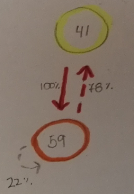 41
100% 78%
59
22%